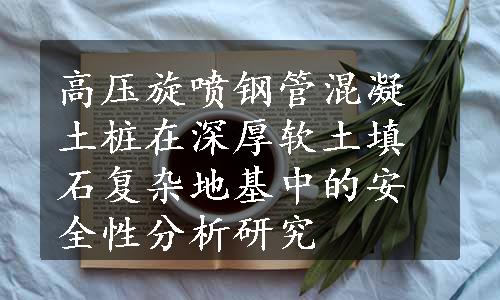 高压旋喷钢管混凝
土桩在深厚软土填
石复杂地基中的安
全性分析研究